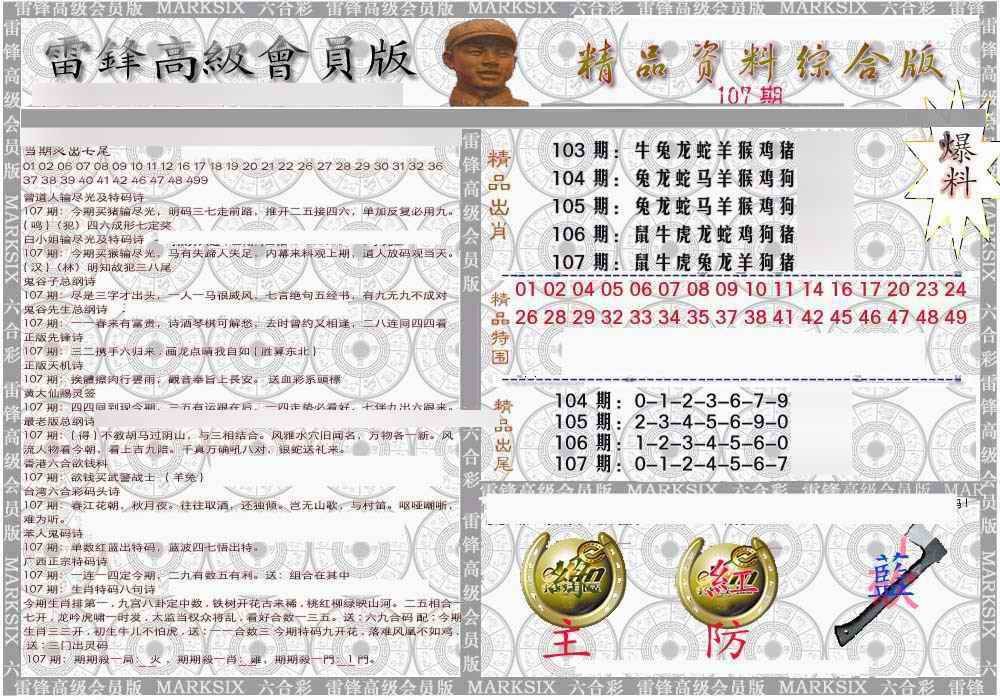 雷锋高级会员版 MARKSIX 六合彩 雷锋高级会员版 MARKSIX 六合彩 雷锋高级会员版 MARKSIX 六合彩 雷锋
雷鋒高級會員版
精品资料综合版
107 期
爆料
当期灵出七尾
01 02 06 07 08 09 10 11 12 16 17 18 19 20 21 22 26 27 28 29 30 31 32 36
37 38 39 40 41 42 46 47 48 499
曾道人输尽光及特码诗
107 期：今期买猪输尽光，萌码三七走前路，推开二五接四六，单加反复必用九。
{ 鸣 }（犯）四六成形七定奖
白小姐输尽光及特码诗
107 期：今期买猴输尽光，马有失蹄人失足，内幕来料观上期，道人放码观当天。
{ 汉 }（林）明知故犯三八尾
鬼谷子总纲诗
107 期：尽是三字才出头，一人一马很威风，七言绝句五经书，有九无九不成对
鬼谷先生总纲诗
107 期：一一春来有富贵，诗酒琴棋可解愁，去时曾约又相逢，二八连同四四看
正版先锋诗
107 期：三二携手六归来，画龙点睛我自如 { 胜算东北 }
正版天机诗
107 期：挨體擦肉行雲雨，觀音奉旨上長安。 送血彩系頭標
黄大仙赐灵签
107 期：四四同到现今期，三五有运跟在后，一四走势必看好，七伴九出六跟来。
最老版总纲诗
107 期：{ 得 } 不教胡马过阴山，与三相结合。风雅水穴旧闻名，万物各一新。风
流人物看今朝，看上吉九陪。千真万确吼八对，银蛇送礼来。
香港六合欲钱料
107 期：欲钱买武警战士 { 羊兔 }
台湾六合彩码头诗
107 期：春江花朝，秋月夜。往往取酒，还独倾。岂无山歌，与村笛。呕哑嘲哳，
难为听。
苯人鬼码诗
107 期：单数红蓝出特码，蓝波四七悟出特。
广西正宗特码诗
107 期：一连一四定今期，二九有数五有利。送：组合在其中
107 期：生肖特码八句诗
今期生肖排第一，九宫八卦定中数，铁树开花古来稀，桃红柳绿映山河。二五相合
七开，龙吟虎啸一时发，太监当权众将乱，看好合数一三五。送：六九合码 配：今期
生肖三三开，初生牛儿不怕虎，送：一一合数三 今期特码九开花，落难凤凰不如鸡，
送：三门出灵码
107 期：期期殺一局： 火 ，期期殺一肖：雞，期期殺一門：1 門。
精品出肖
103 期：牛兔龙蛇羊猴鸡猪
104 期：兔龙蛇马羊猴鸡狗
105 期：兔龙蛇马羊猴鸡狗
106 期：鼠牛虎龙蛇鸡狗猪
107 期：鼠牛虎兔龙羊狗猪
精品特围
01 02 04 05 06 07 08 09 10 11 14 16 17 20 23 24
26 28 29 32 33 34 35 37 38 41 42 45 46 47 48 49
精品出尾
104 期：0-1-2-3-6-7-9
105 期：2-3-4-5-6-9-0
106 期：1-2-3-4-5-6-0
107 期：0-1-2-4-5-6-7
綠
主
紅
防
藍
雷锋高级会员版 MARKSIX 六合彩 雷锋高级会员版 MARKSIX 六合彩 雷锋高级会员版 MARKSIX 六合彩 雷锋